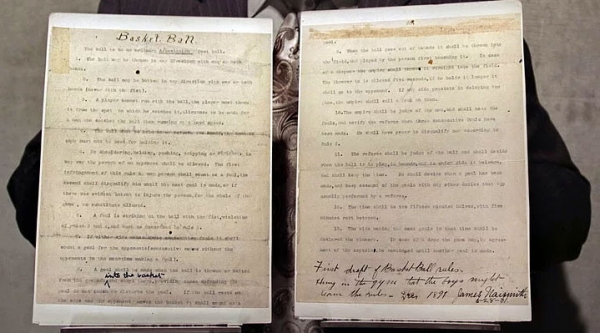 Basket Ball
The ball to be an ordinary Association foot ball.
1. The ball may be thrown in any direction with one or both
hands.
2. The ball may be batted in any direction with one or both
hands (never with the fist).
3. A player cannot run with the ball, the player must throw
it from the spot on which he catches it, allowance to be made for
a man who catches the ball when running at a good speed.
4. The ball must be held
must not be used for holding it.
5. No shouldering, holding, pushing, tripping or
way the person of an opponent shall be allowed. The first
infringement of this rule by any person shall count as a foul, the
second shall disqualify him until the next goal is made, or if
there was evident intent to injure the person, for the whole of the
game, no substitute allowed.
6. A foul is striking at the ball with the fist, violation
of rules 3 and 4, and such as described in rule 5.
7. If either side
a goal for the opponents (consecutive means without the
opponents in the meantime making a foul).
8. A goal shall be made when the ball is thrown or batted
from the grounds into the basket
If the ball rests on
the edge and the opponent moves the basket it shall count as a
goal.
9. When the ball goes out of bounds it shall be thrown into
the field, and played by the person first touching it. In case
of a dispute the umpire shall throw it straight into the field.
The thrower in is allowed five seconds, if he holds it longer it
shall go to the opponent. If any side persists in delaying the
game, the umpire shall call a foul on them.
10. The umpire shall be judge of the men, and shall note the
fouls, and notify the referee when three consecutive fouls have
been made. He shall have power to disqualify men according to
Rule 5.
11. The referee shall be judge of the ball and shall decide
when the ball is in play, in bounds, and to which side it belongs,
and shall keep the time. He shall decide when a goal has been
made, and keep account of the goals with any other duties that are
usually performed by a referee.
12. The time shall be two fifteen minutes halves, with five
minutes rest between.
13. The side making the most goals in that time shall be
declared the winners. In case of a draw the game may, by agree-
ment of the captains, be continued until another goal is made.
First draft of Basket Ball rules.
Hung in the gym that the boys might
learn the rules - Dec 1891 James Naismith
6-28-31